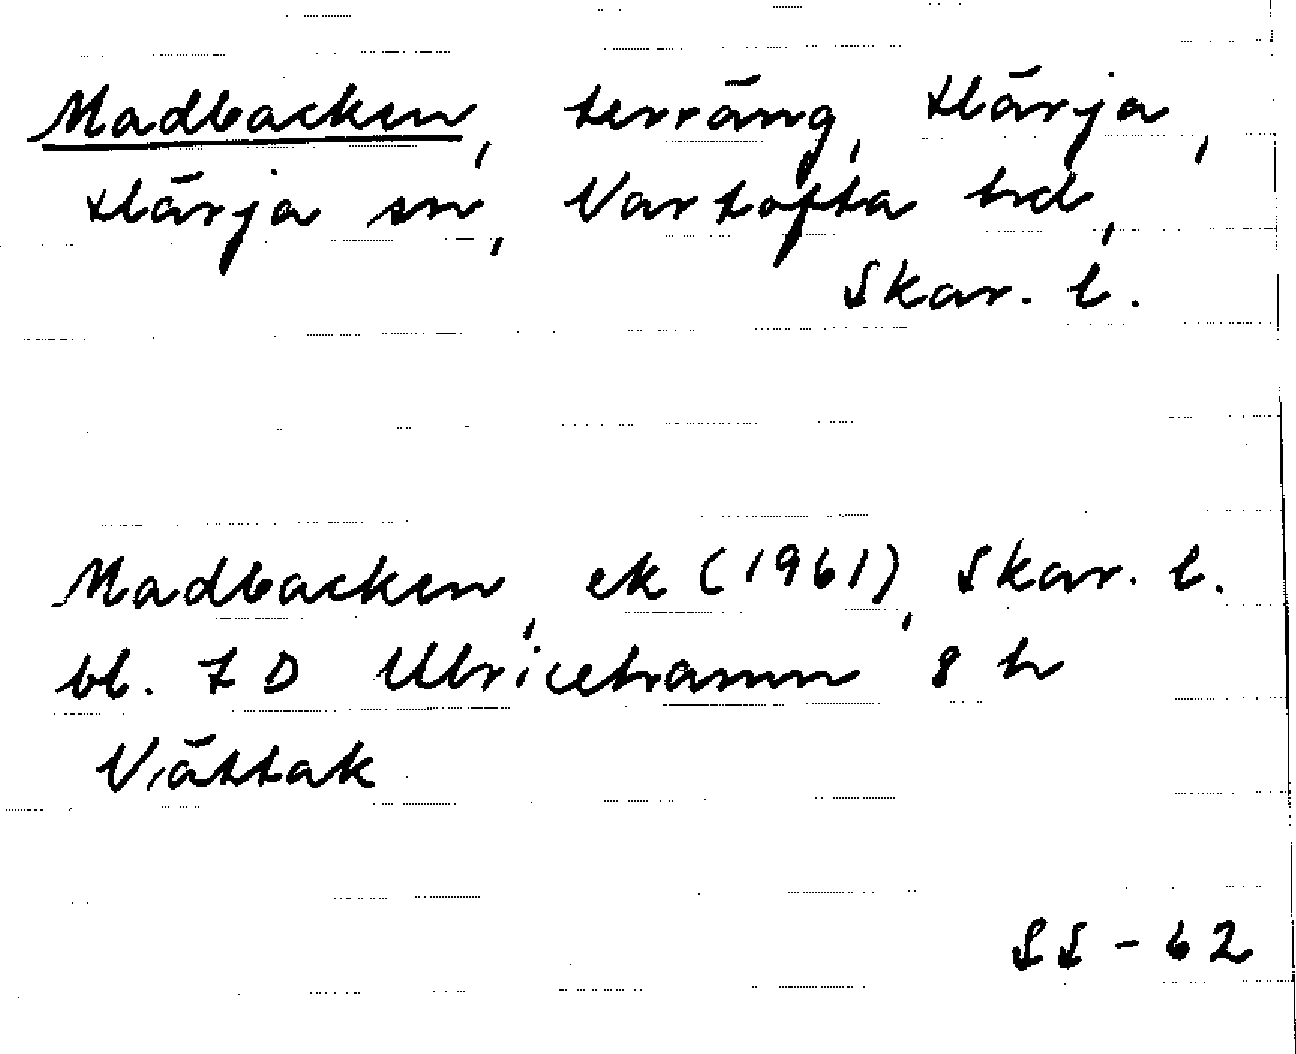 Madbacken, terräng, Härja,
Härja sn, Vartofta hd,
Skar. l.
Madbacken, ek (1961), Skar. l.
bl. 7 D Ulricehamn 8 h
Vättak
SS - 62